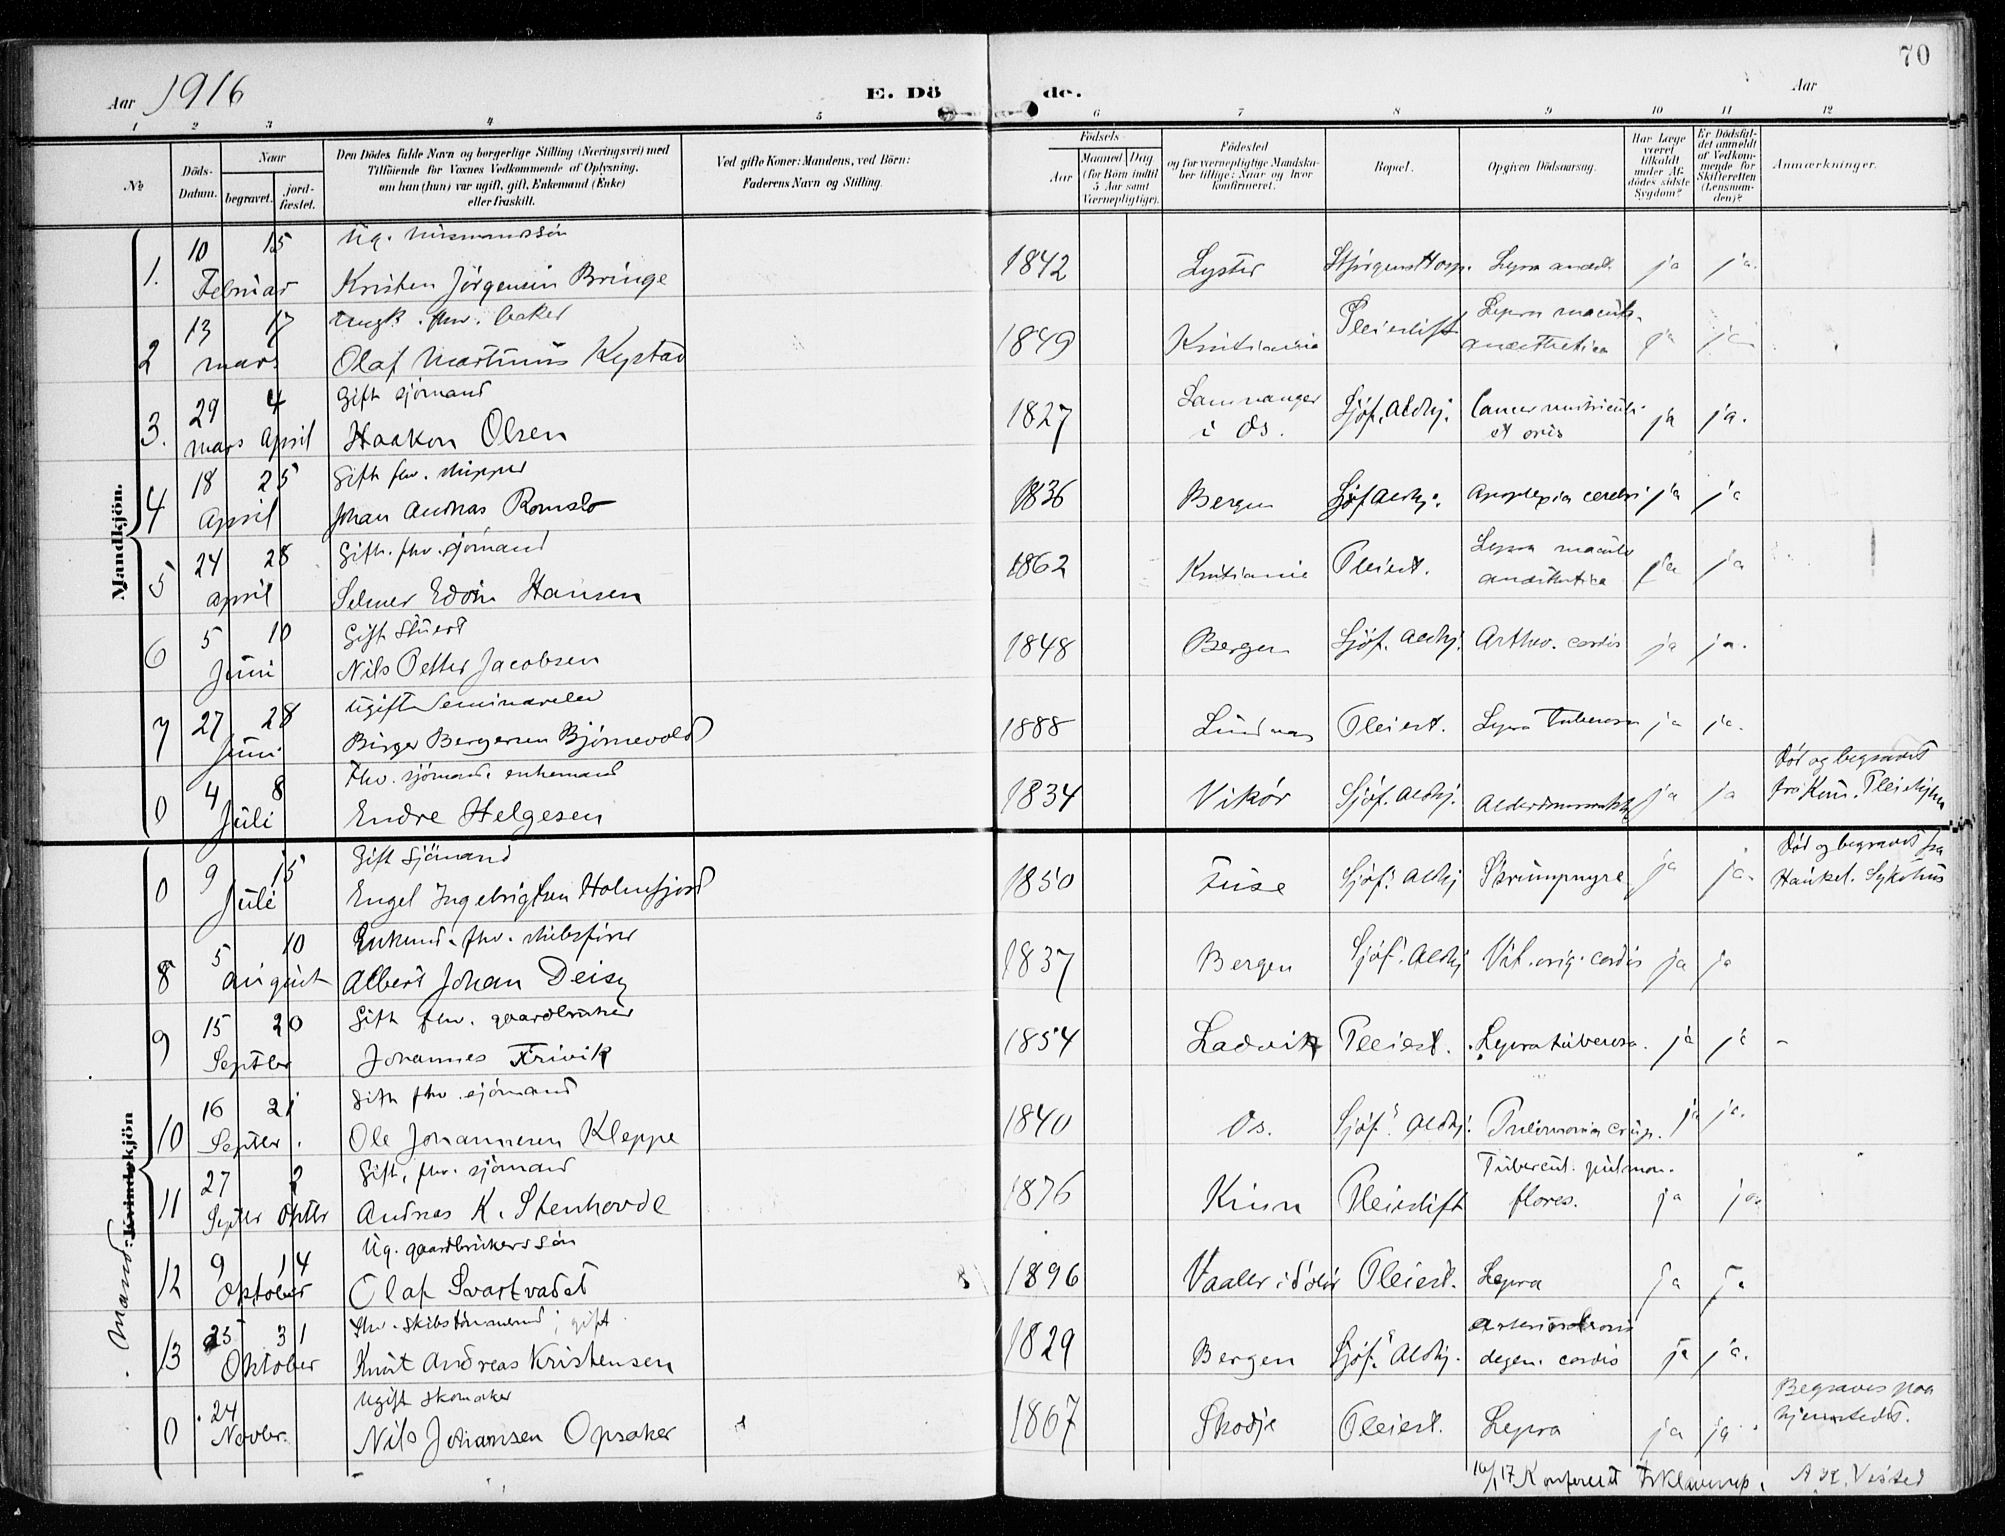 70
Aar 1916
E. Dö de.
Aar
1 2 3 4 5 6 7 8 9 10 11 12
№
Döds-Datum.
Naar
begravet.
jord-fæstet.
Den Dödes fulde Navn og borgerlige Stilling (Næringsvei) med
Tilföiende for Voxnes Vedkommende af Oplysning,
om han (hun) var ugift, gift, Enkemand (Enke)
eller fraskilt.
Ved gifte Koner: Mandens, ved Börn:
Faderens Navn og Stilling.
Födsels
Aar
Maaned (for Börn indtil 5 Aar samt Værnepligtige).
Dag
Födested
og for værnepligtige Mandska-
ber tillige: Naar og hvor
konfirmeret.
Bopæl.
Opgiven Dödsaarsag.
Har Læge været tilkaldt under Af-dödes sidste Sygdom?
Er Dödsfal-det anmeldt af Vedkom-mende for Skifteretten (Lensman-den)?
Anmærkninger.
Mandkjön.
Ug. husmandssön
1. 10 15 Februar Kristen Jörgensen Bringe 1842 Lyster St Jörgens Hosp. Lepra anæst. ja ja.
fhv. baker
2 13 17 mars Olaf Martinus Kystad 1849 Kristiania Pleiestift Lepra maculo-anæsthetica ja ja
Gift sjömand
3. 29 4 mars April Haakon Olsen 1827 i Os. Sjöf. Aldhj. Cancer et oris ja ja.
Gift fhv. skipper
4 18 25 April Johan Andreas Romslo 1836 Bergen Sjöf Aldhj. Apoplexia cerebri ja ja
Gift. fhv. sjömand
5 24 28 april Selmer Edvin Hansen 1862 Kristiania Pleiest. Lepra maculo anæsthetica ja ja
Gift Stuert
6 5 10 Juni Nils Petter Jacobsen 1848 Bergen Sjöf. Aldhj. cordis ja ja.
Ugift Seminarelev
7 27 28 Juni Birger Bergersen Björnevold 1888 Lindaas Pleiest. Lepra tuberosa ja ja.
Fhv. sjömand, enkemand
0 4 8 Juli Endre Helgesen 1834 Vikör Sjöf. Aldhj. ja ja Död og begravet fra Kom. Pleiehjem
Gift Sjömand
0 9 15 Juli Engel Ingebrigtsen Holmefjord 1850 Fuse Sjöf. Aldhj Skrumpnyre ja ja. Död og begravet fra Haukel. Sykehus
Enkemd. fhv. skibsförer
8 5 10 august Albert Johan Deisz 1837 Bergen Sjöf. Aldhj Vit. orig. cordis ja ja
Gift fhv. gaardbruker
9 15 20 Septbr Johannes Trivik 1854 Ladvik Pleiest. Lepra tuberosa. ja ja -
Gift fhv. sjömand
10 16 21 Septbr. Ole Johannesen Kleppe 1840 Os. Sjöf. Aldhj. Pneumonia crup. ja ja.
Gift, fhv. sjömand
11 27 2 Septbr Oktbr Andreas K. Stenhovde 1876 Kinn Pleiestift Tubercul. pulmon. flores. ja ja
Ug. gaardbrukerssön
12 9 14 Oktober Olaf Svartvadet 1896 Vaaler i Solör Pleiest. Lepra ja ja
fhv. skibstömmermd; gift
13 25 31 Oktober Knut Andreas Kristensen 1829 Bergen Sjöf. Aldhj. degen. cordis ja ja.
Ugift skomaker
0 24 Novbr. Nils Johansen Opsaker 1867 Skodje Pleiest. Lepra ja ja Begraves paa hjemstedet.
Mand: Kvindekjön
16/1 17 Konferert